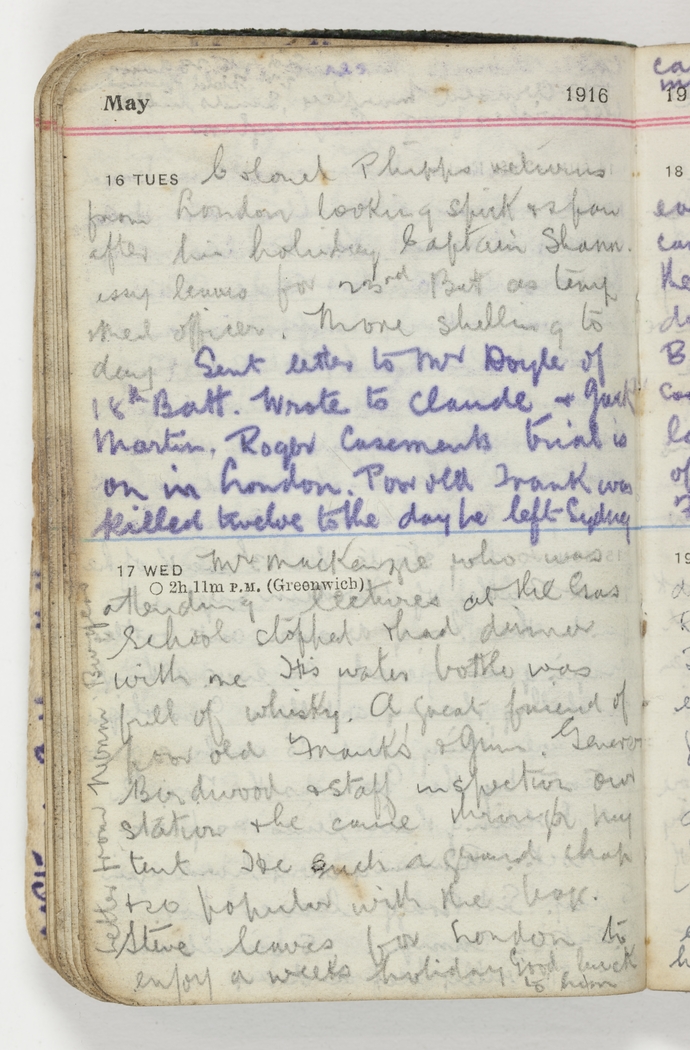 May 1916
16 TUES Colonel Phipps returns
from London looking spick & span
after his holiday Captain Shann.
essy leaves for 23rd Batt as temp
Med officer. More shelling to
day. Sent letter to Mr Doyle of
18th Batt. Wrote to Claude & Jack
Martin. Roger Casements trial is
on in London. Poor old Frank was
killed twelve to the day he left Sydney
17 WED Mr MacKenzie who was
2h.11m P.M. (Greenwich)
attending lectures at the Gas
School stopped & had dinner
with me His water bottle was
full of whisky. A great friend of
poor old Frank's & Gunn. General
Birdwood & staff inspection our
station & he came through my
tent. He such a grand chap
& so popular with the boys.
Steve leaves for London to
enjoy a weeks holiday Good luck
to him
Letter from Norm
18
19